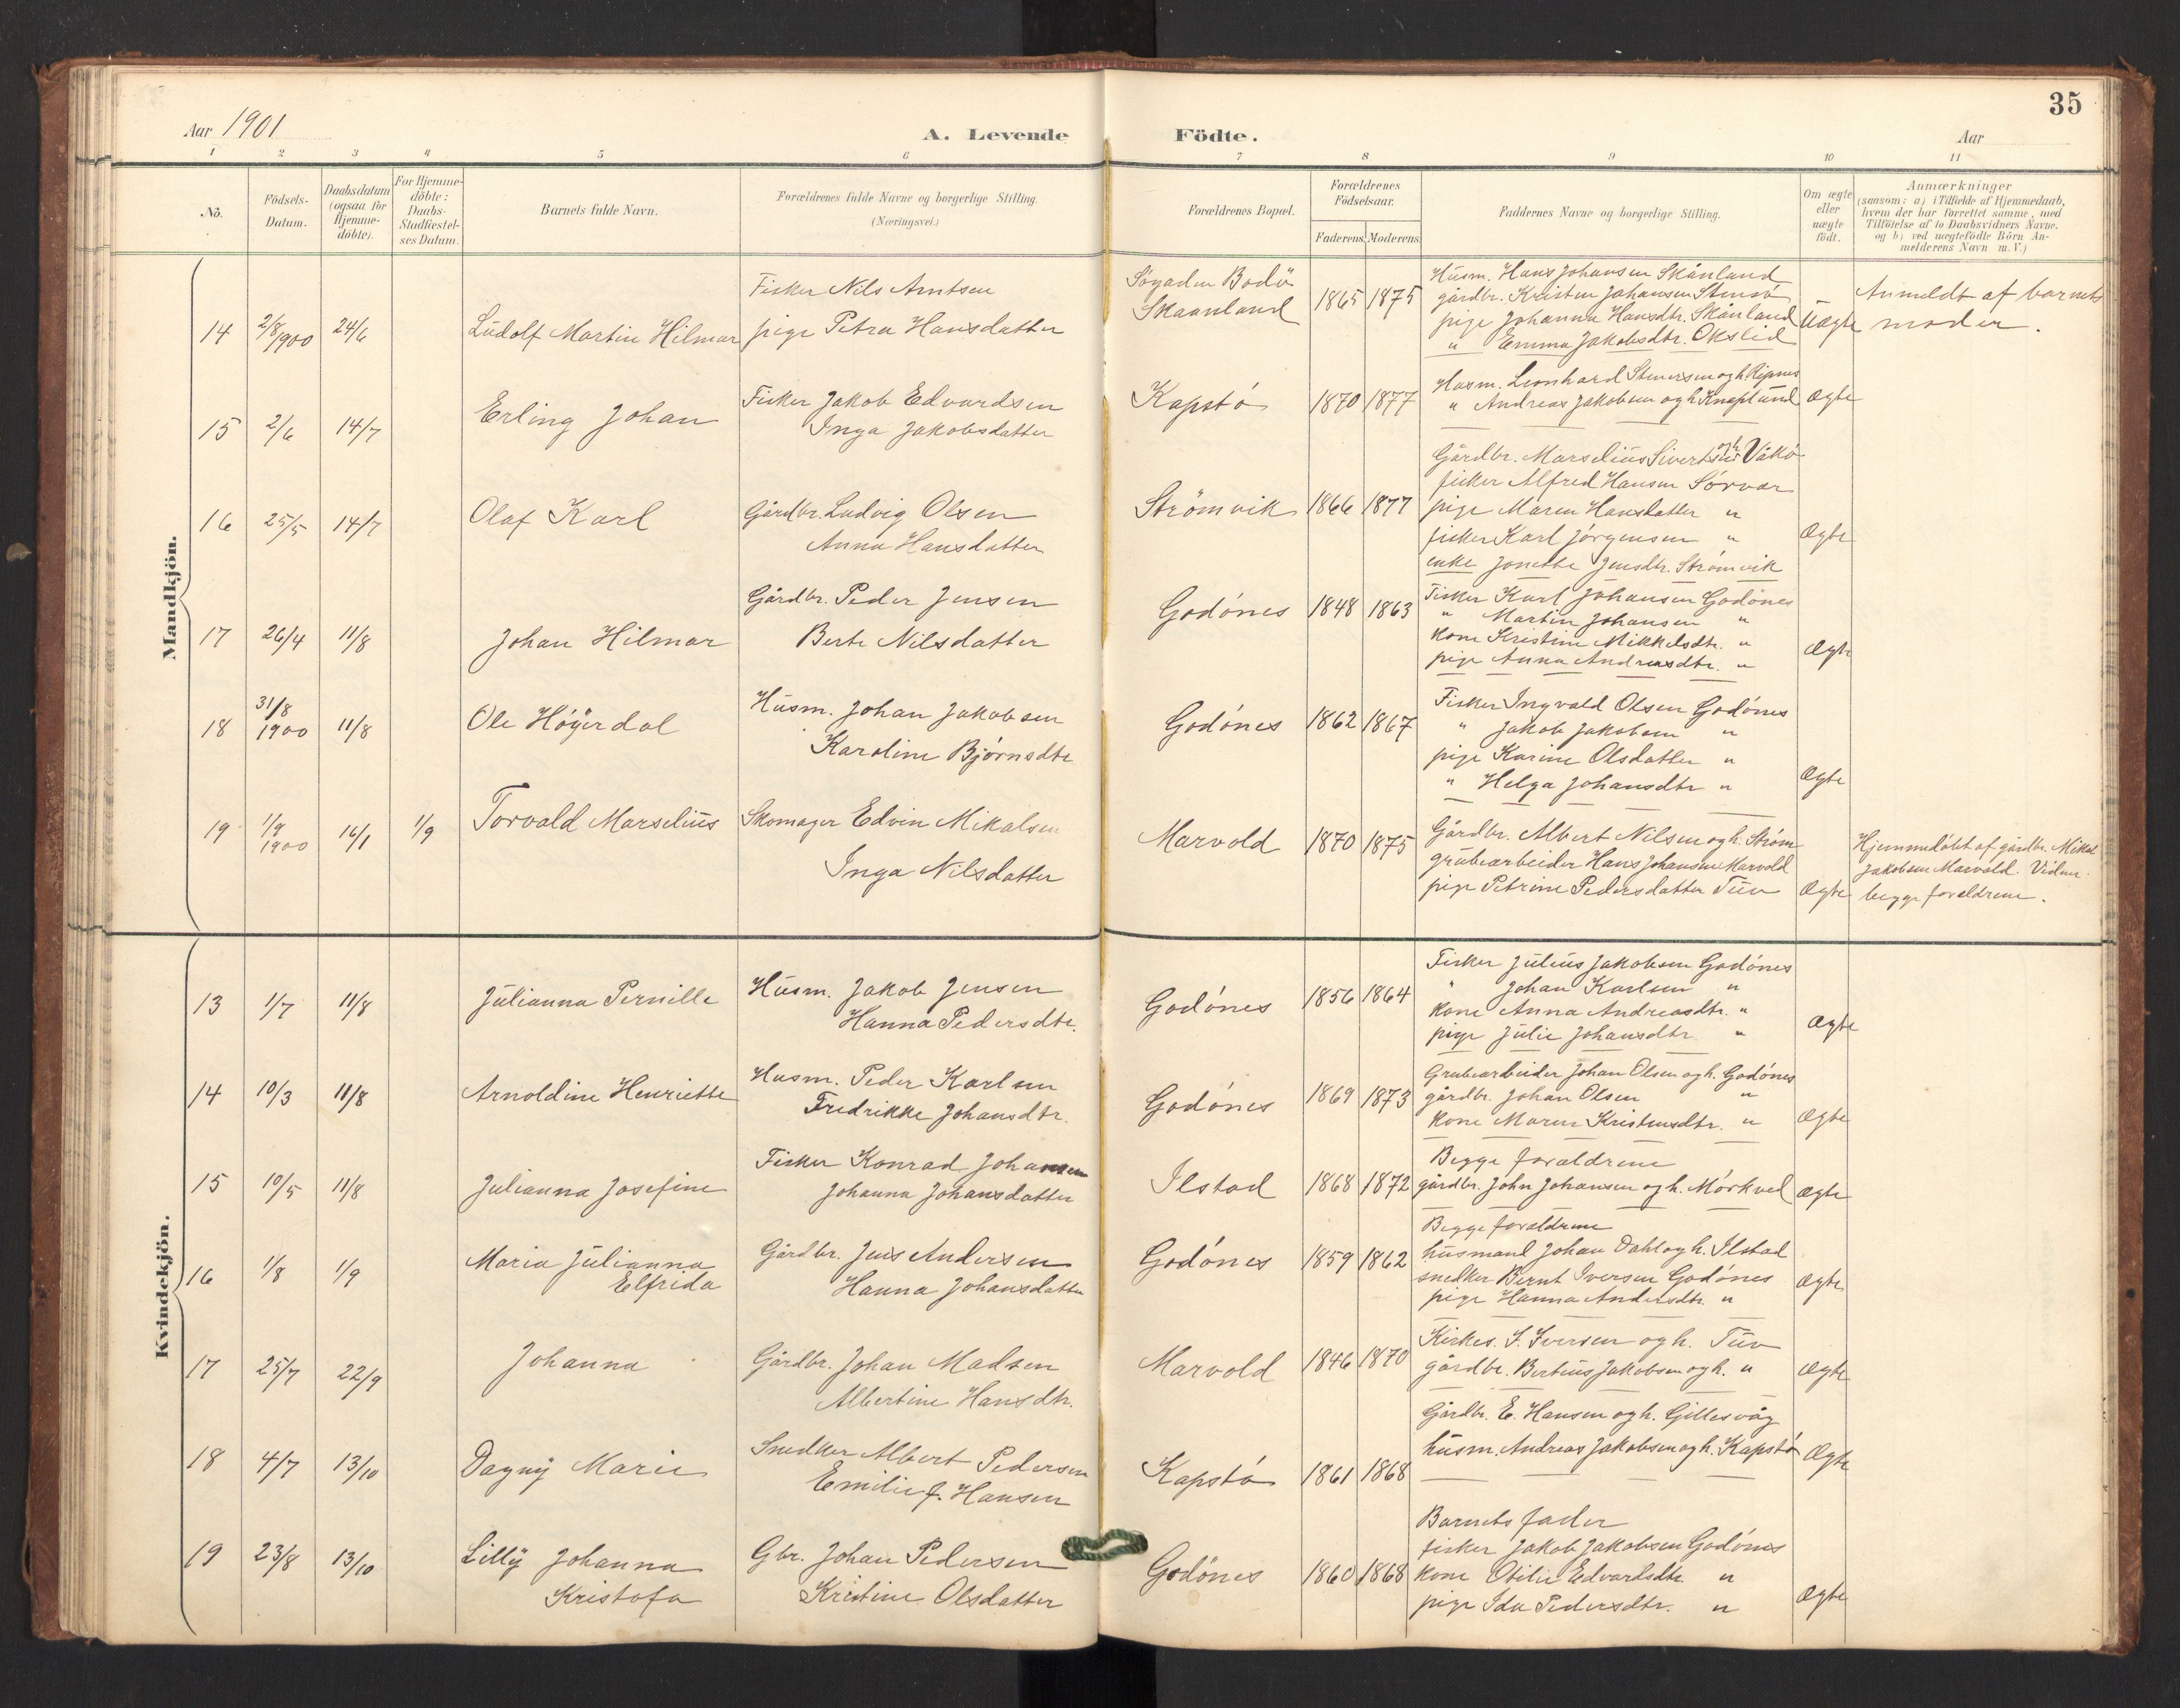 35
Aar 1901
A. Levende Födte.
Aar
1 2 3 4 5 6 7 8 9 10 11
No.
Födsels-Datum.
Daabsdatum (ogsaa for Hjemme-döbte).
For Hjemme-döbte: Daabs-Stadfæstel-ses Datum.
Barnets fulde Navn.
Forældrenes fulde Navne og borgerlige Stilling.
(Næringsvei.)
Forældrenes Bopæl.
Forældrenes Födselsaar.
Faderens. Moderens.
Faddernes Navne og borgerlige Stilling.
Om ægte eller uægte födt.
Anmærkninger
(saasom: a) i Tilfælde af Hjemmedaab,
hvem der har forrettet samme, med
Tilföielse af to Daabsvidners Navne.
og b) ved uægtefödte Börn An-
melderens Navn m. V.)
Mandkjön.
14 2/8 1900 24/6 Ludolf Martin Hilmar
Fisker Nils Arntsen
pige Petra Hansdatter
Bodö
Skaanland 1865 1875
Husm. Hans Johansen Skånland
gårdbr. Kristen Johansen Stensö
pige Johanna Hansdtr. Skånland
" Emma Jakobsdtr. Okslid
Uægte
Anmeldt af barnets
moder.
15 2/6 14/7 Erling Johan
Fisker Jakob Edvardsen
Inga Jakobsdatter
Kapstö 1870 1877
Husm. Leonhard Stenersen og h. Ripnes
" Andreas Jakobsen og h. Knaplund
Ægte
16 25/5 14/7 Olaf Karl
Gårdbr. Ludvig Olsen
Anna Hansdatter
Strömvik 1866 1877
Gårdbr. Marselius Sivertsen og h. Våkö
fisker Alfred Hansen Sörvær
pige Maren Hansdatter "
fisker Karl Jörgensen "
enke Jonette Jensdtr. Strömvik
Ægte
17 26/4 11/8 Johan Hilmar
Gårdbr. Peder Jensen
Berte Nilsdatter
Godönes 1848 1863
Fisker Karl Johansen Godönes
" Martin Johansen "
kone Kristine Mikkelsdtr. "
pige Anna Andreasdtr. "
Ægte
18 31/8 1900 11/8 Ole Höyerdal
Husm. Johan Jakobsen
Karoline Björnsdtr
Godönes 1862 1867
Fisker Ingvald Olsen Godönes
" Jakob Jakobsen "
pige Karine Olsdatter "
" Helga Johansdtr "
Ægte
19 1/9 1900 16/1 1/9 Torvald Marselius
Skomager Edvin Mikalsen
Inga Nilsdatter
Marvold 1870 1875
Gårdbr. Albert Nilsen og h. Ström
grubearbeider Hans Johansen Marvold
pige Petrine Pedersdatter Tuv
Ægte
Hjemmedöbt af gårdbr. Mikal
Jakobsen Marvold. Vidner
begge forældrene.
Kvindekjön.
13 1/7 11/8 Julianna Pernille
Husm. Jakob Jensen
Hanna Pedersdtr.
Godönes 1856 1864
Fisker Julius Jakobsen Godönes
" Johan Karlsen "
kone Anna Andreasdtr. "
pige Julie Johansdtr. "
Ægte
14 10/3 11/8 Arnoldine Henriette
Husm. Peder Karlsen
Fredrikke Johansdtr.
Godönes 1869 1873
Grubearbeider Johan Olsen og h. Godönes
gårdbr. Johan Olsen "
kone Maren Kristensdtr. "
Ægte
15 10/5 11/8 Julianna Josefine
Fisker Konrad Johansen
Johanna Johansdatter
Ilstad 1868 1872
Begge forældrene
gårdbr. John Johansen og h. Mörkved
Ægte
16 1/8 1/9 Maria Julianna
Elfrida
Gårdbr. Jens Andersen
Hanna Johansdatter
Godönes 1859 1862
Begge forældrene
husmand Johan Dahl og h. Ilstad
snedker Bernt Iversen Godönes
pige Hanna Andersdtr. "
Ægte
17 25/7 22/9 Johanna
Gårdbr. Johan Madsen
Albertine Hansdtr.
Marvold 1846 1870
Kirkes. I. Iversen og h. Tuv
gårdbr. Bertius Jakobsen og h. "
Ægte
18 4/7 13/10 Dagny Marie
Snedker Albert Pedersen
Emilie f. Hansen
Kapstö 1861 1868
Gårdbr. E. Hansen og h. Gillesvåg
husm. Andreas Jakobsen og h. Kapstö
Ægte
19 23/8 13/10 Lilly Johanna
Kristofa
Gbr. Johan Pedersen
Kristine Olsdatter
Godönes 1860 1868
Barnets fader
fisker Jakob Jakobsen Godönes
kone Otilie Edvardsdtr. "
pige Ida Pedersdtr. "
Ægte